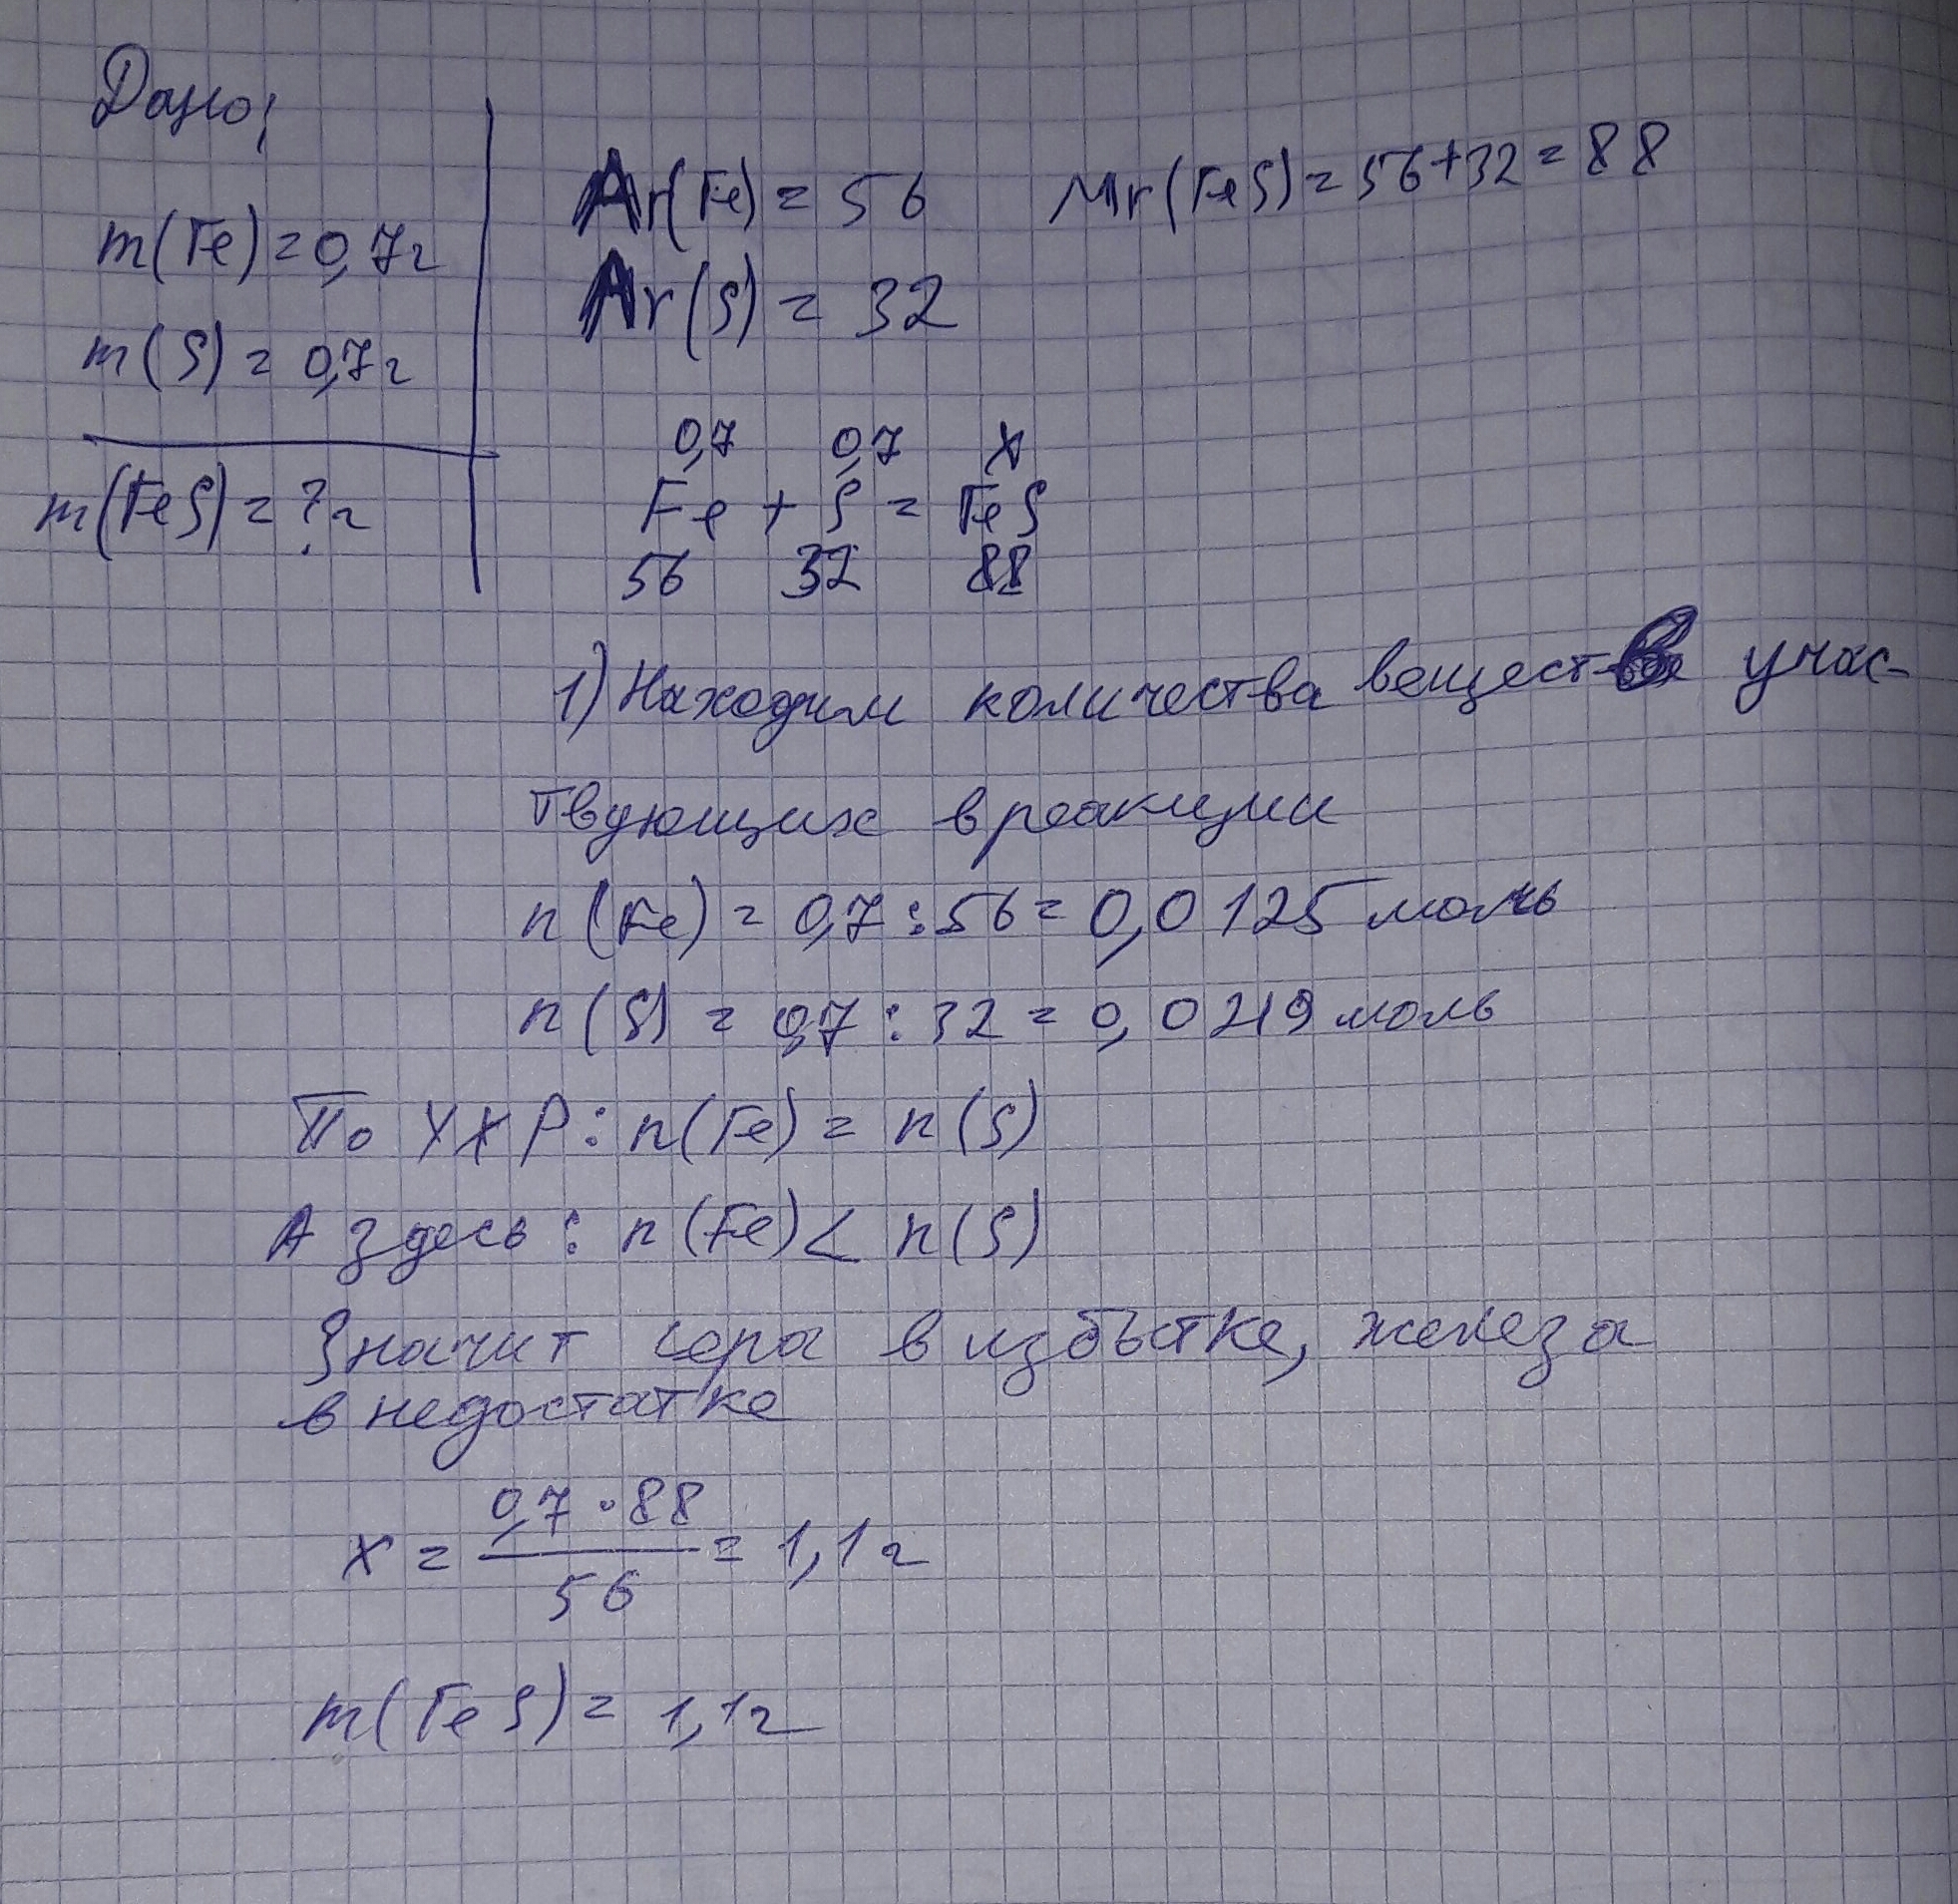 Дано:
m(Fe) = 0,7г
m(S) = 0,7г
m(FeS) = ? г
Ar(Fe) = 56 Mr(FeS) = 56+32 = 88
Ar(S) = 32
0,7 0,7 x
Fe + S = FeS
56 32 88
1) Находим количества веществ учас-
твующих в реакции
n(Fe) = 0,7 : 56 = 0,0125 моль
n(S) = 0,7 : 32 = 0,0219 моль
По УХР: n(Fe) = n(S)
А здесь: n(Fe) < n(S)
Значит сера в избытке, железа
в недостатке
x = 0,7 · 88 / 56 = 1,1 г
m(FeS) = 1,1г